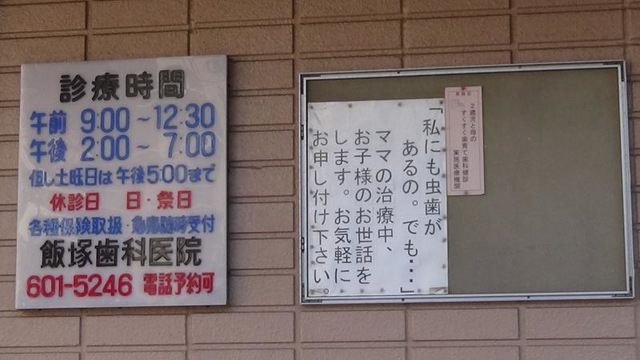 診療時間
午前 9:00～12:30
午後 2:00～ 7:00
但し土曜日は午後5:00まで
休診日 日・祭日
各種保険取扱・急患随時受付
飯塚歯科医院
601-5246 電話予約可
「私にも虫歯が
あるの。でも・・・」
ママの治療中、
お子様のお世話を
します。お気軽に
お申し付け下さい
2歳児と母の
すくすく歯育て歯科健診
実施医療機関